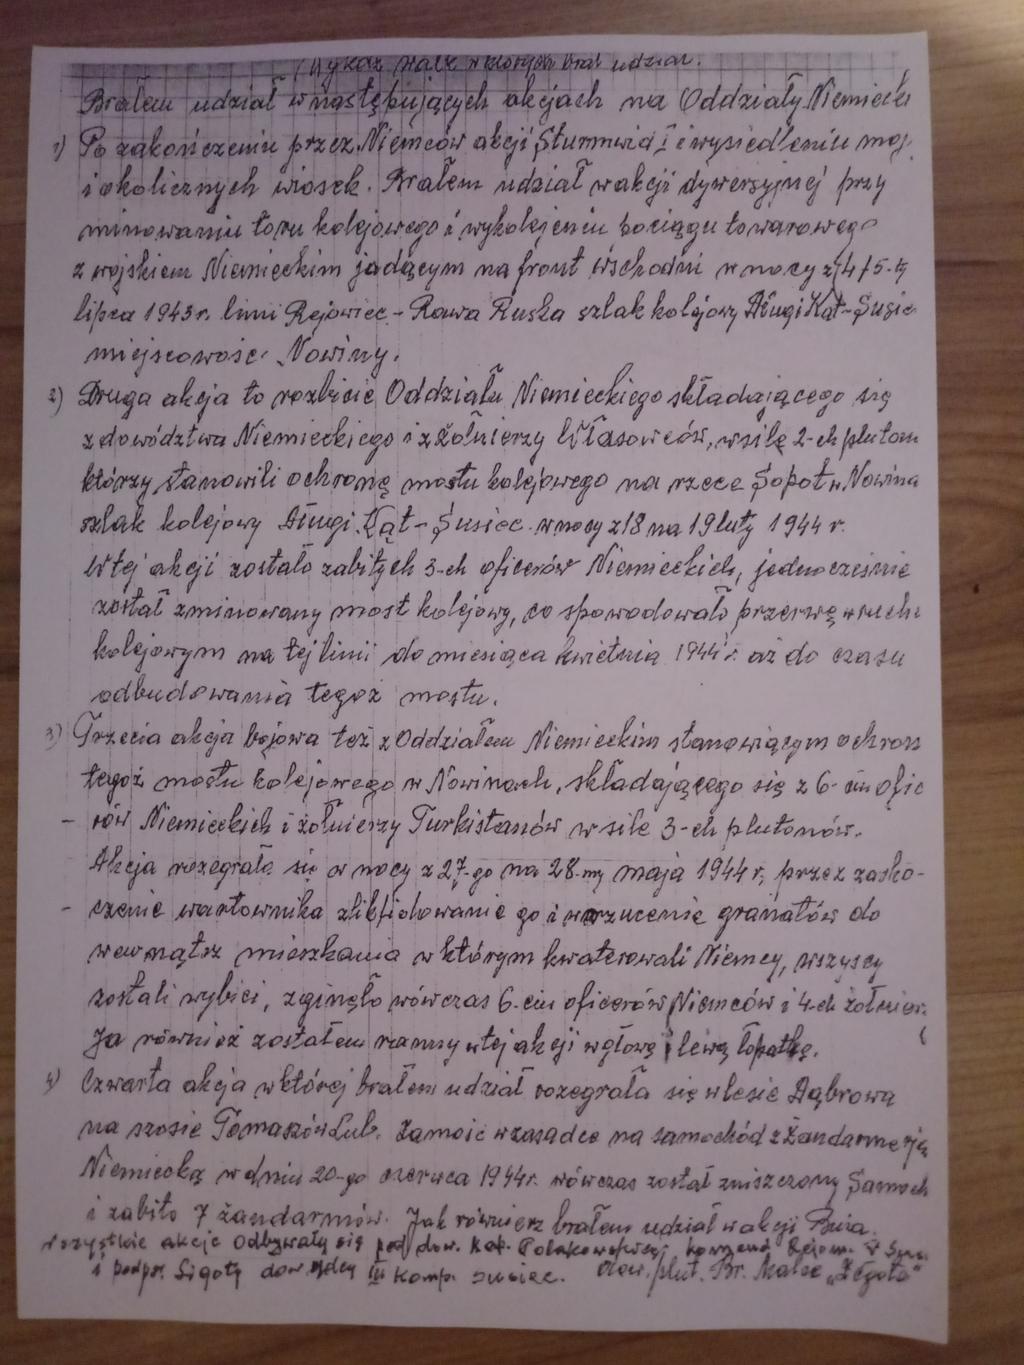 Wykaz walk w których brał udział.
Brałem udział w następujących akcjach na Oddziały Niemieck
1) Po zakończeniu przez Niemców akcji Sturmwid I i wysiedleniu moj.
i okolicznych wiosek. Brałem udział w akcji dywersyjnej przy
minowaniu toru kolejowego i wykolejeniu pociągu towarowego
z wojskiem Niemieckim jadącym na front wschodni w nocy z 4/5-tą
lipca 1943 r. linii Rejowiec - Rawa Ruska szlak kolejowy Długi Kąt - Susiec
miejscowość Nowiny.
2) Druga akcja to rozbicie Oddziału Niemieckiego składającego się
z dowództwa Niemieckiego i z żołnierzy Własowców, w sile 2-ch pluton
którzy stanowili ochronę mostu kolejowego na rzece Sopot w Nowina
szlak kolejowy Długi Kąt - Susiec w nocy z 18 na 19 luty 1944 r.
W tej akcji zostało zabitych 3-ch oficerów Niemieckich, jednocześnie
został zminowany most kolejowy, co spowodowało przerwę w ruchu
kolejowym na tej linii do miesiąca kwietnia 1944 r. aż do czasu
odbudowania tegoż mostu.
3) Trzecia akcja bojowa też z Oddziałem Niemieckim stanowiącym ochron
tegoż mostu kolejowego w Nowinach, składającego się z 6-ciu ofic
- rów Niemieckich i żołnierzy Turkistanów w sile 3-ch plutonów.
Akcja rozegrała się w nocy z 27-go na 28-my maja 1944 r, przez zasko-
- czenie wartownika zlikfidowanie go i wrzucenie granatów do
wewnątrz mieszkania w którym kwaterowali Niemcy, wszyscy
zostali wybici, zginęło wówczas 6-ciu oficerów Niemców i 4-ch żołnier.
Ja również zostałem ranny w tej akcji w głowę i lewą łopatkę.
4) Czwarta akcja w której brałem udział rozegrała się w lesie Dąbrowa
na szosie Tomaszów Lub. Zamość w zasadce na samochód z Żandarmerją
Niemiecką w dniu 20-go czerwca 1944 r. wówczas został zniszczony Samoch
i zabito 7 żandarmów. Jak równierz brałem udział w akcji Buża.
wszystkie akcje odbywały się pod dow. Kap. Polakowskiej, komend Rejon.
i podpor. Sigoty dowódcy III komp. Susiec. dow. plut. Br. Malec "Żegota"